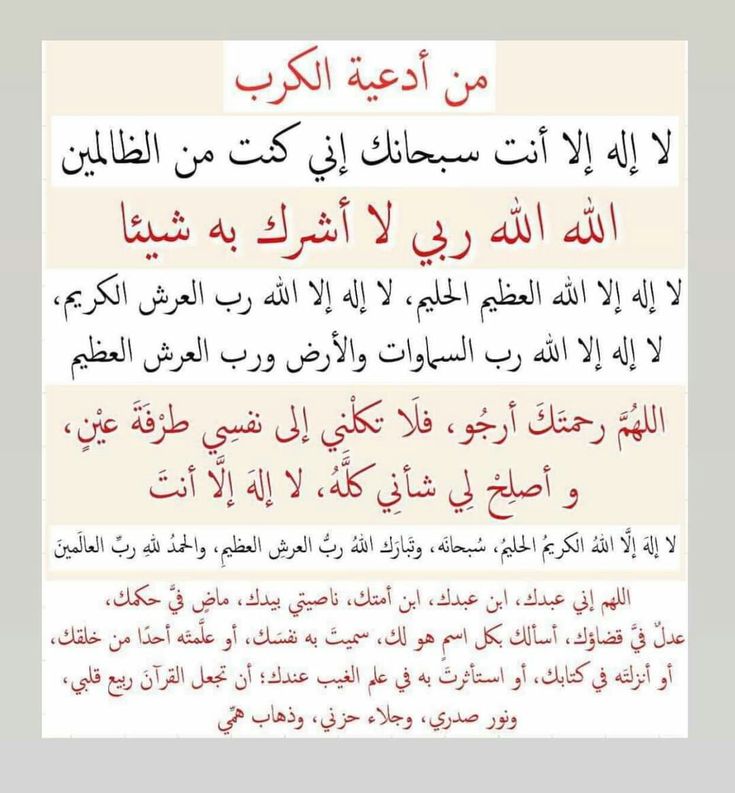 من أدعية الكرب
لا إله إلا أنت سبحانك إني كنت من الظالمين
الله الله ربي لا أشرك به شيئا
لا إله إلا الله العظيم الحليم، لا إله إلا الله رب العرش الكريم،
لا إله إلا الله رب السماوات والأرض ورب العرش العظيم
اللهُمَّ رحمتَكَ أرجُو، فلَا تكلْني إلى نفسِي طرْفَةَ عيْنٍ،
و أصلِحْ لِي شأنِي كلَّهُ، لا إلهَ إلَّا أنتَ
لا إلهَ إلَّا اللهُ الكريمُ الحليمُ، سُبحانَه، وتَبارَك اللهُ ربُّ العرشِ العظيمِ، والحمدُ للهِ ربِّ العالَمينَ
اللهم إني عبدك، ابن عبدك، ابن أمتك، ناصيتي بيدك، ماضٍ فيَّ حكمك،
عدلٌ فيَّ قضاؤك، أسألك بكل اسمٍ هو لك، سميتَ به نفسَك، أو علَّمتَه أحدًا من خلقك،
أو أنزلتَه في كتابك، أو استأثرتَ به في علم الغيب عندك؛ أن تجعل القرآنَ ربيع قلبي،
ونور صدري، وجلاء حزني، وذهاب همِّي